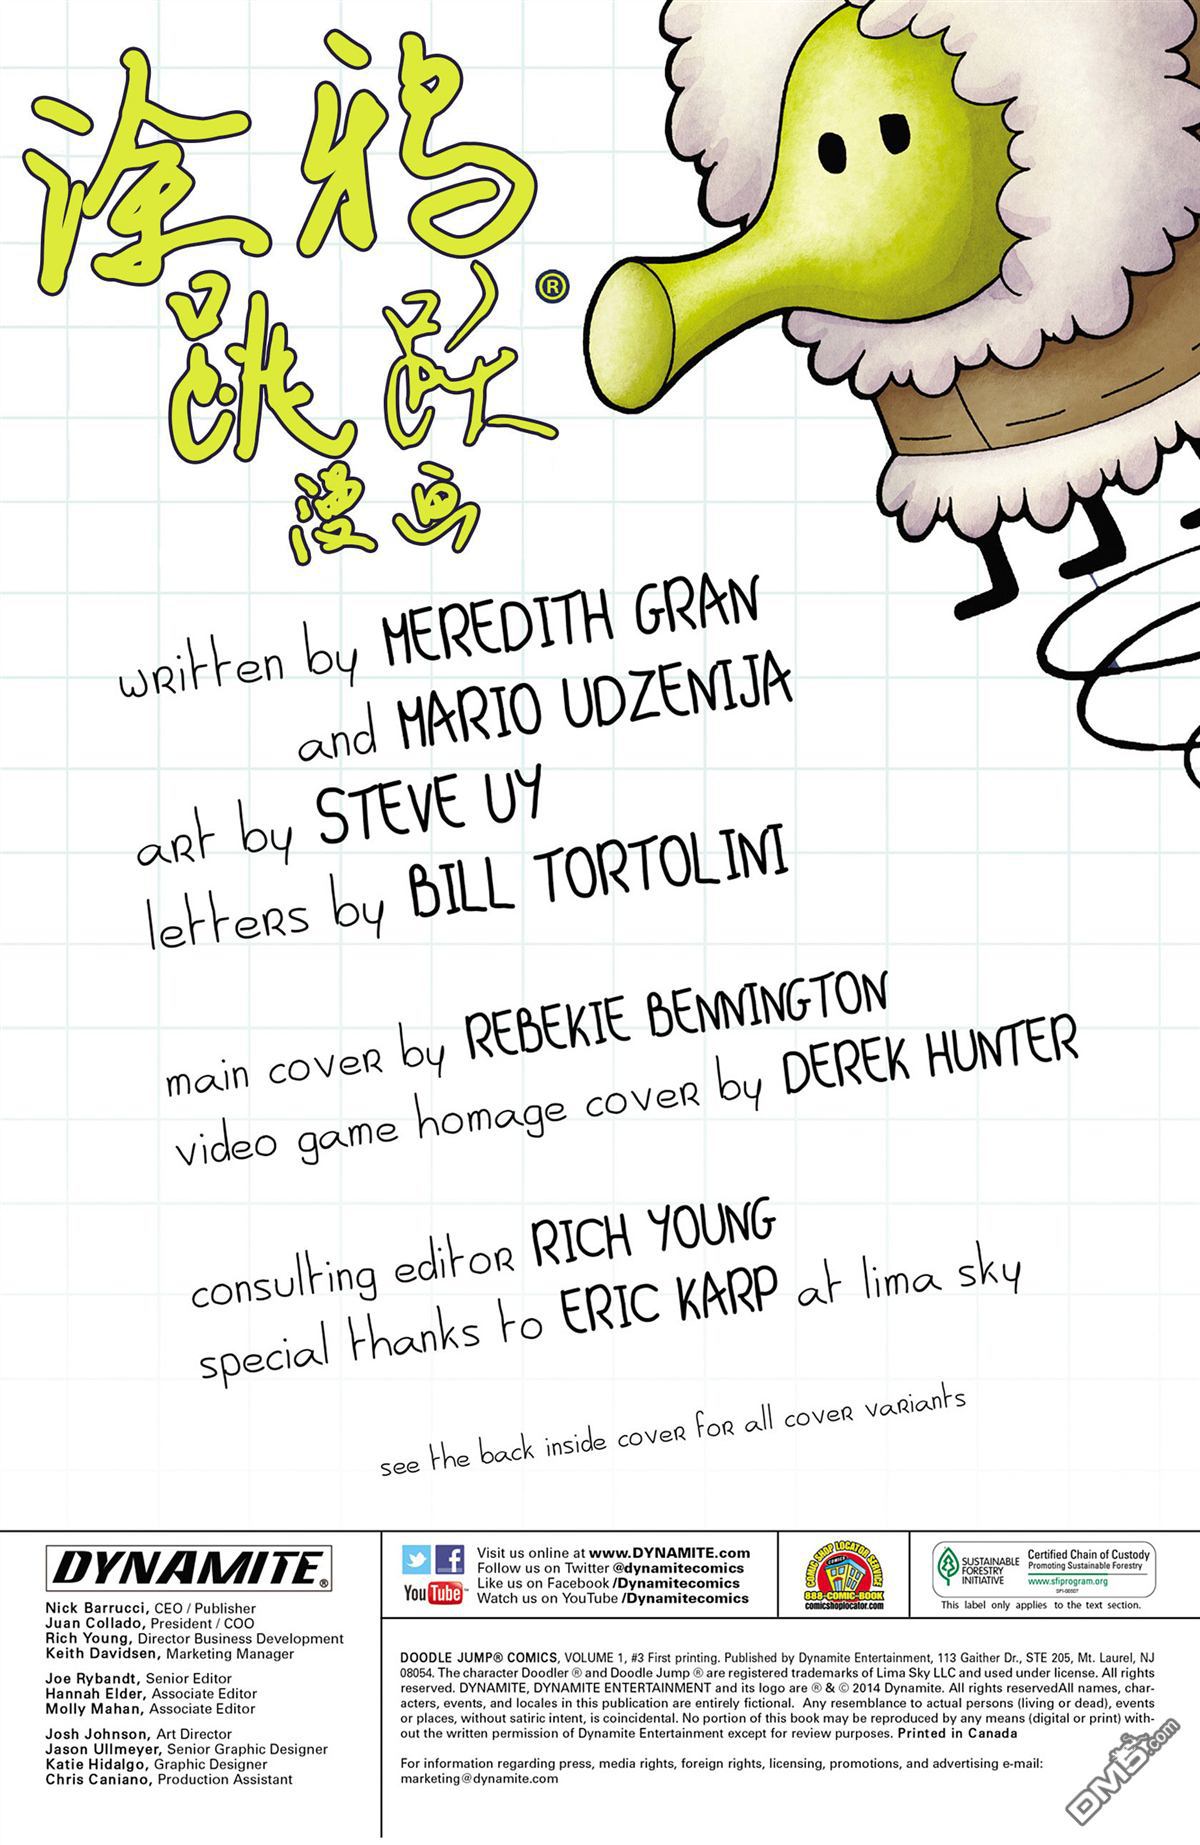 涂鸦
跳跃®
漫画
written by MEREDITH GRAN
and MARIO UDZENIJA
art by STEVE UY
letters by BILL TORTOLINI
main cover by REBEKIE BENNINGTON
video game homage cover by DEREK HUNTER
consulting editor RICH YOUNG
special thanks to ERIC KARP at lima sky
see the back inside cover for all cover variants
DYNAMITE®
Nick Barrucci, CEO / Publisher
Juan Collado, President / COO
Rich Young, Director Business Development
Keith Davidsen, Marketing Manager
Joe Rybandt, Senior Editor
Hannah Elder, Associate Editor
Molly Mahan, Associate Editor
Josh Johnson, Art Director
Jason Ullmeyer, Senior Graphic Designer
Katie Hidalgo, Graphic Designer
Chris Caniano, Production Assistant
You Tube™
Visit us online at www.DYNAMITE.com
Follow us on Twitter @dynamitecomics
Like us on Facebook /Dynamitecomics
Watch us on YouTube /Dynamitecomics
COMIC SHOP LOCATOR SERVICE
COMICS
888-COMIC-BOOK
comicshoplocator.com
SUSTAINABLE
FORESTRY
INITIATIVE
Certified Chain of Custody
Promoting Sustainable Forestry
www.sfiprogram.org
SFI-00507
This label only applies to the text section.
DOODLE JUMP® COMICS, VOLUME 1, #3 First printing. Published by Dynamite Entertainment, 113 Gaither Dr., STE 205, Mt. Laurel, NJ
08054. The character Doodler ® and Doodle Jump ® are registered trademarks of Lima Sky LLC and used under license. All rights
reserved. DYNAMITE, DYNAMITE ENTERTAINMENT and its logo are ® & © 2014 Dynamite. All rights reservedAll names, char-
acters, events, and locales in this publication are entirely fictional. Any resemblance to actual persons (living or dead), events
or places, without satiric intent, is coincidental. No portion of this book may be reproduced by any means (digital or print) with-
out the written permission of Dynamite Entertainment except for review purposes. Printed in Canada
For information regarding press, media rights, foreign rights, licensing, promotions, and advertising e-mail:
marketing@dynamite.com
DM5.com